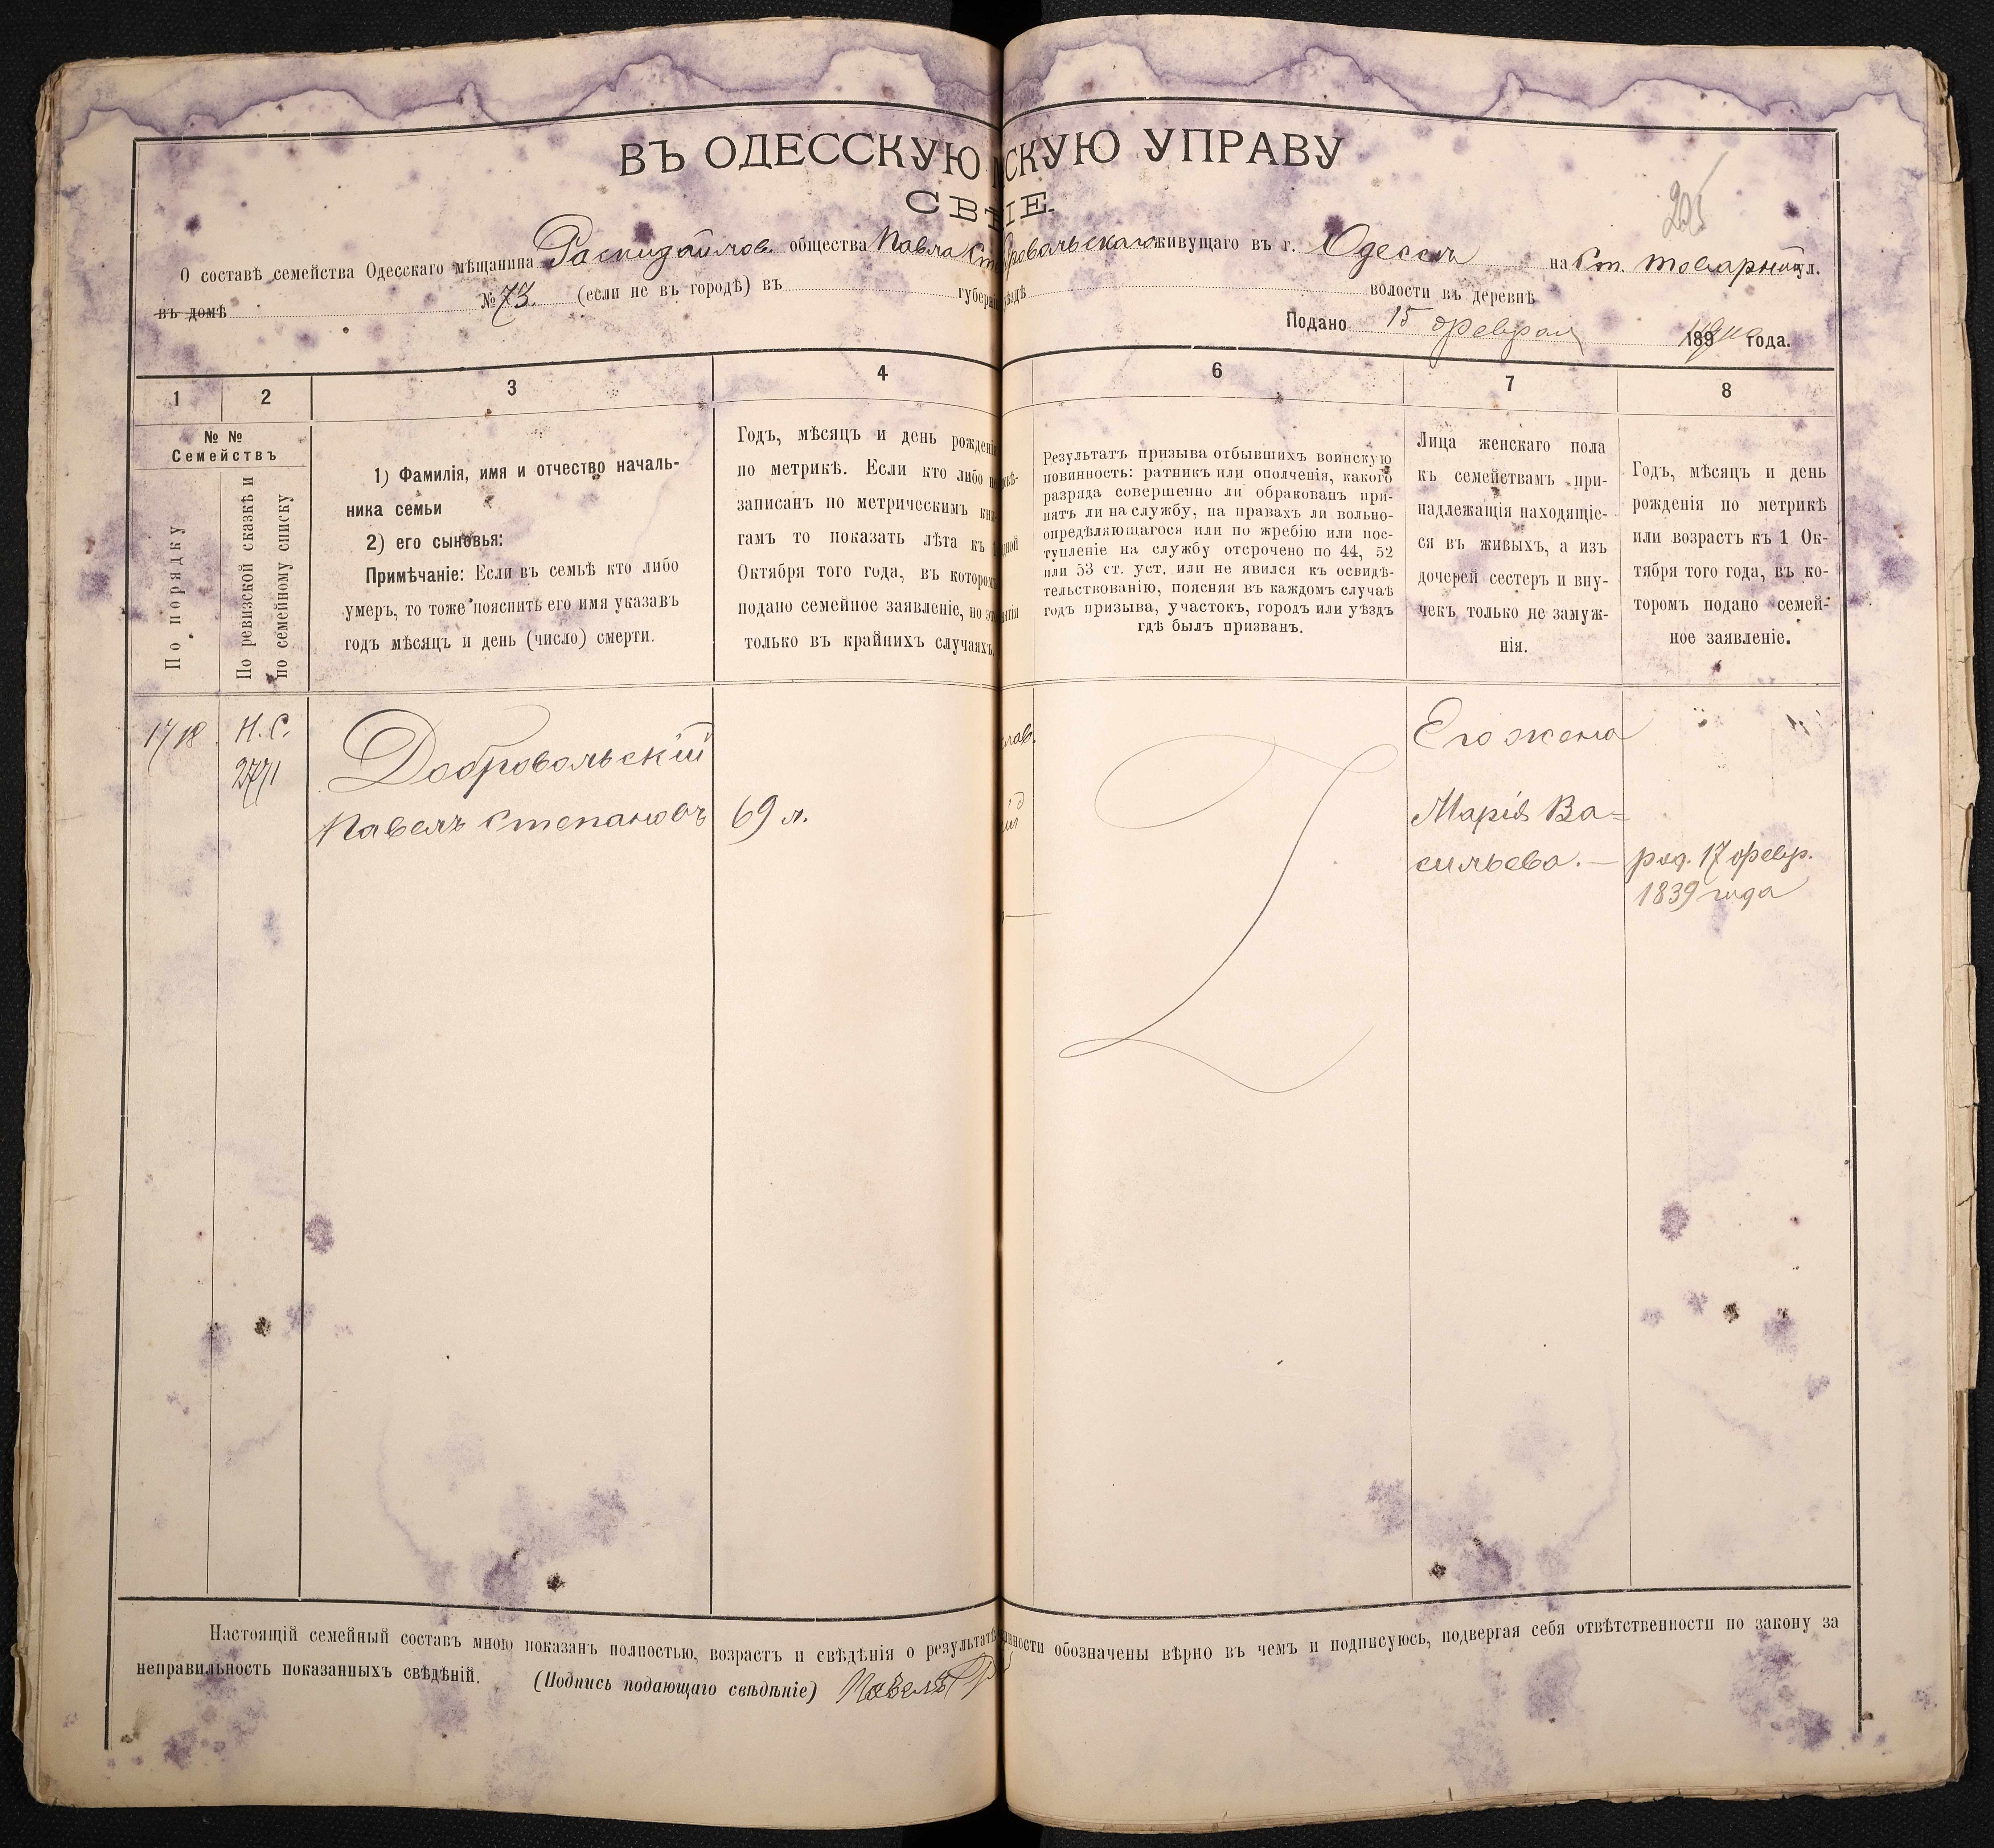 ВЪ ОДЕССКУЮ СКУЮ УПРАВУ
СВѢ ІЕ.
205
О составѣ семейства Одесскаго мѣщанина общества Павла живущаго въ г. Одесса на Ст. Товарной ул.
въ домѣ № 73. (если не въ городѣ) въ губерніи уѣздѣ волости въ деревнѣ
Подано 15 февраля 189 года.
1 2 3 4 6 7 8
№ №
Семействъ
По порядку
По ревизской сказкѣ и
по семейному списку
1) Фамилія, имя и отчество началь-
ника семьи
2) его сыновья:
Примѣчаніе: Если въ семьѣ кто либо
умеръ, то тоже пояснить его имя указавъ
годъ мѣсяцъ и день (число) смерти.
Годъ, мѣсяцъ и день рожденія
по метрикѣ. Если кто либо не
записанъ по метрическимъ кни-
гамъ то показать лѣта къ 1
Октября того года, въ которомъ
подано семейное заявленіе, но это
только въ крайнихъ случаяхъ.
Результатъ призыва отбывшихъ воинскую
повинность: ратникъ или ополченія, какого
разряда совершенно ли обракованъ при-
нятъ ли на службу, на правахъ ли вольно-
опредѣляющагося или по жребію или пос-
тупленіе на службу отсрочено по 44, 52
или 53 ст. уст. или не явился къ освидѣ-
тельствованію, поясняя въ каждомъ случаѣ
годъ призыва, участокъ, городъ или уѣздъ
гдѣ былъ призванъ.
Лица женскаго пола
къ семействамъ при-
надлежащія находящіе-
ся въ живыхъ, а изъ
дочерей сестеръ и вну-
чекъ только не замуж-
нія.
Годъ, мѣсяцъ и день
рожденія по метрикѣ
или возрастъ къ 1 Ок-
тября того года, въ ко-
торомъ подано семей-
ное заявленіе.
1718
Н.С.
2771
Добровольскій
Павелъ Степановъ
69 л.
Его жена
Марія Ва=
сильева. —
род. 17 февр.
1839 года
Настоящій семейный составъ мною показанъ полностью, возрастъ и свѣдѣнія о результатѣ нности обозначены вѣрно въ чемъ и подписуюсь, подвергая себя отвѣтственности по закону за
неправильность показанныхъ свѣдѣній. (Подпись подающаго свѣдѣніе) Павелъ